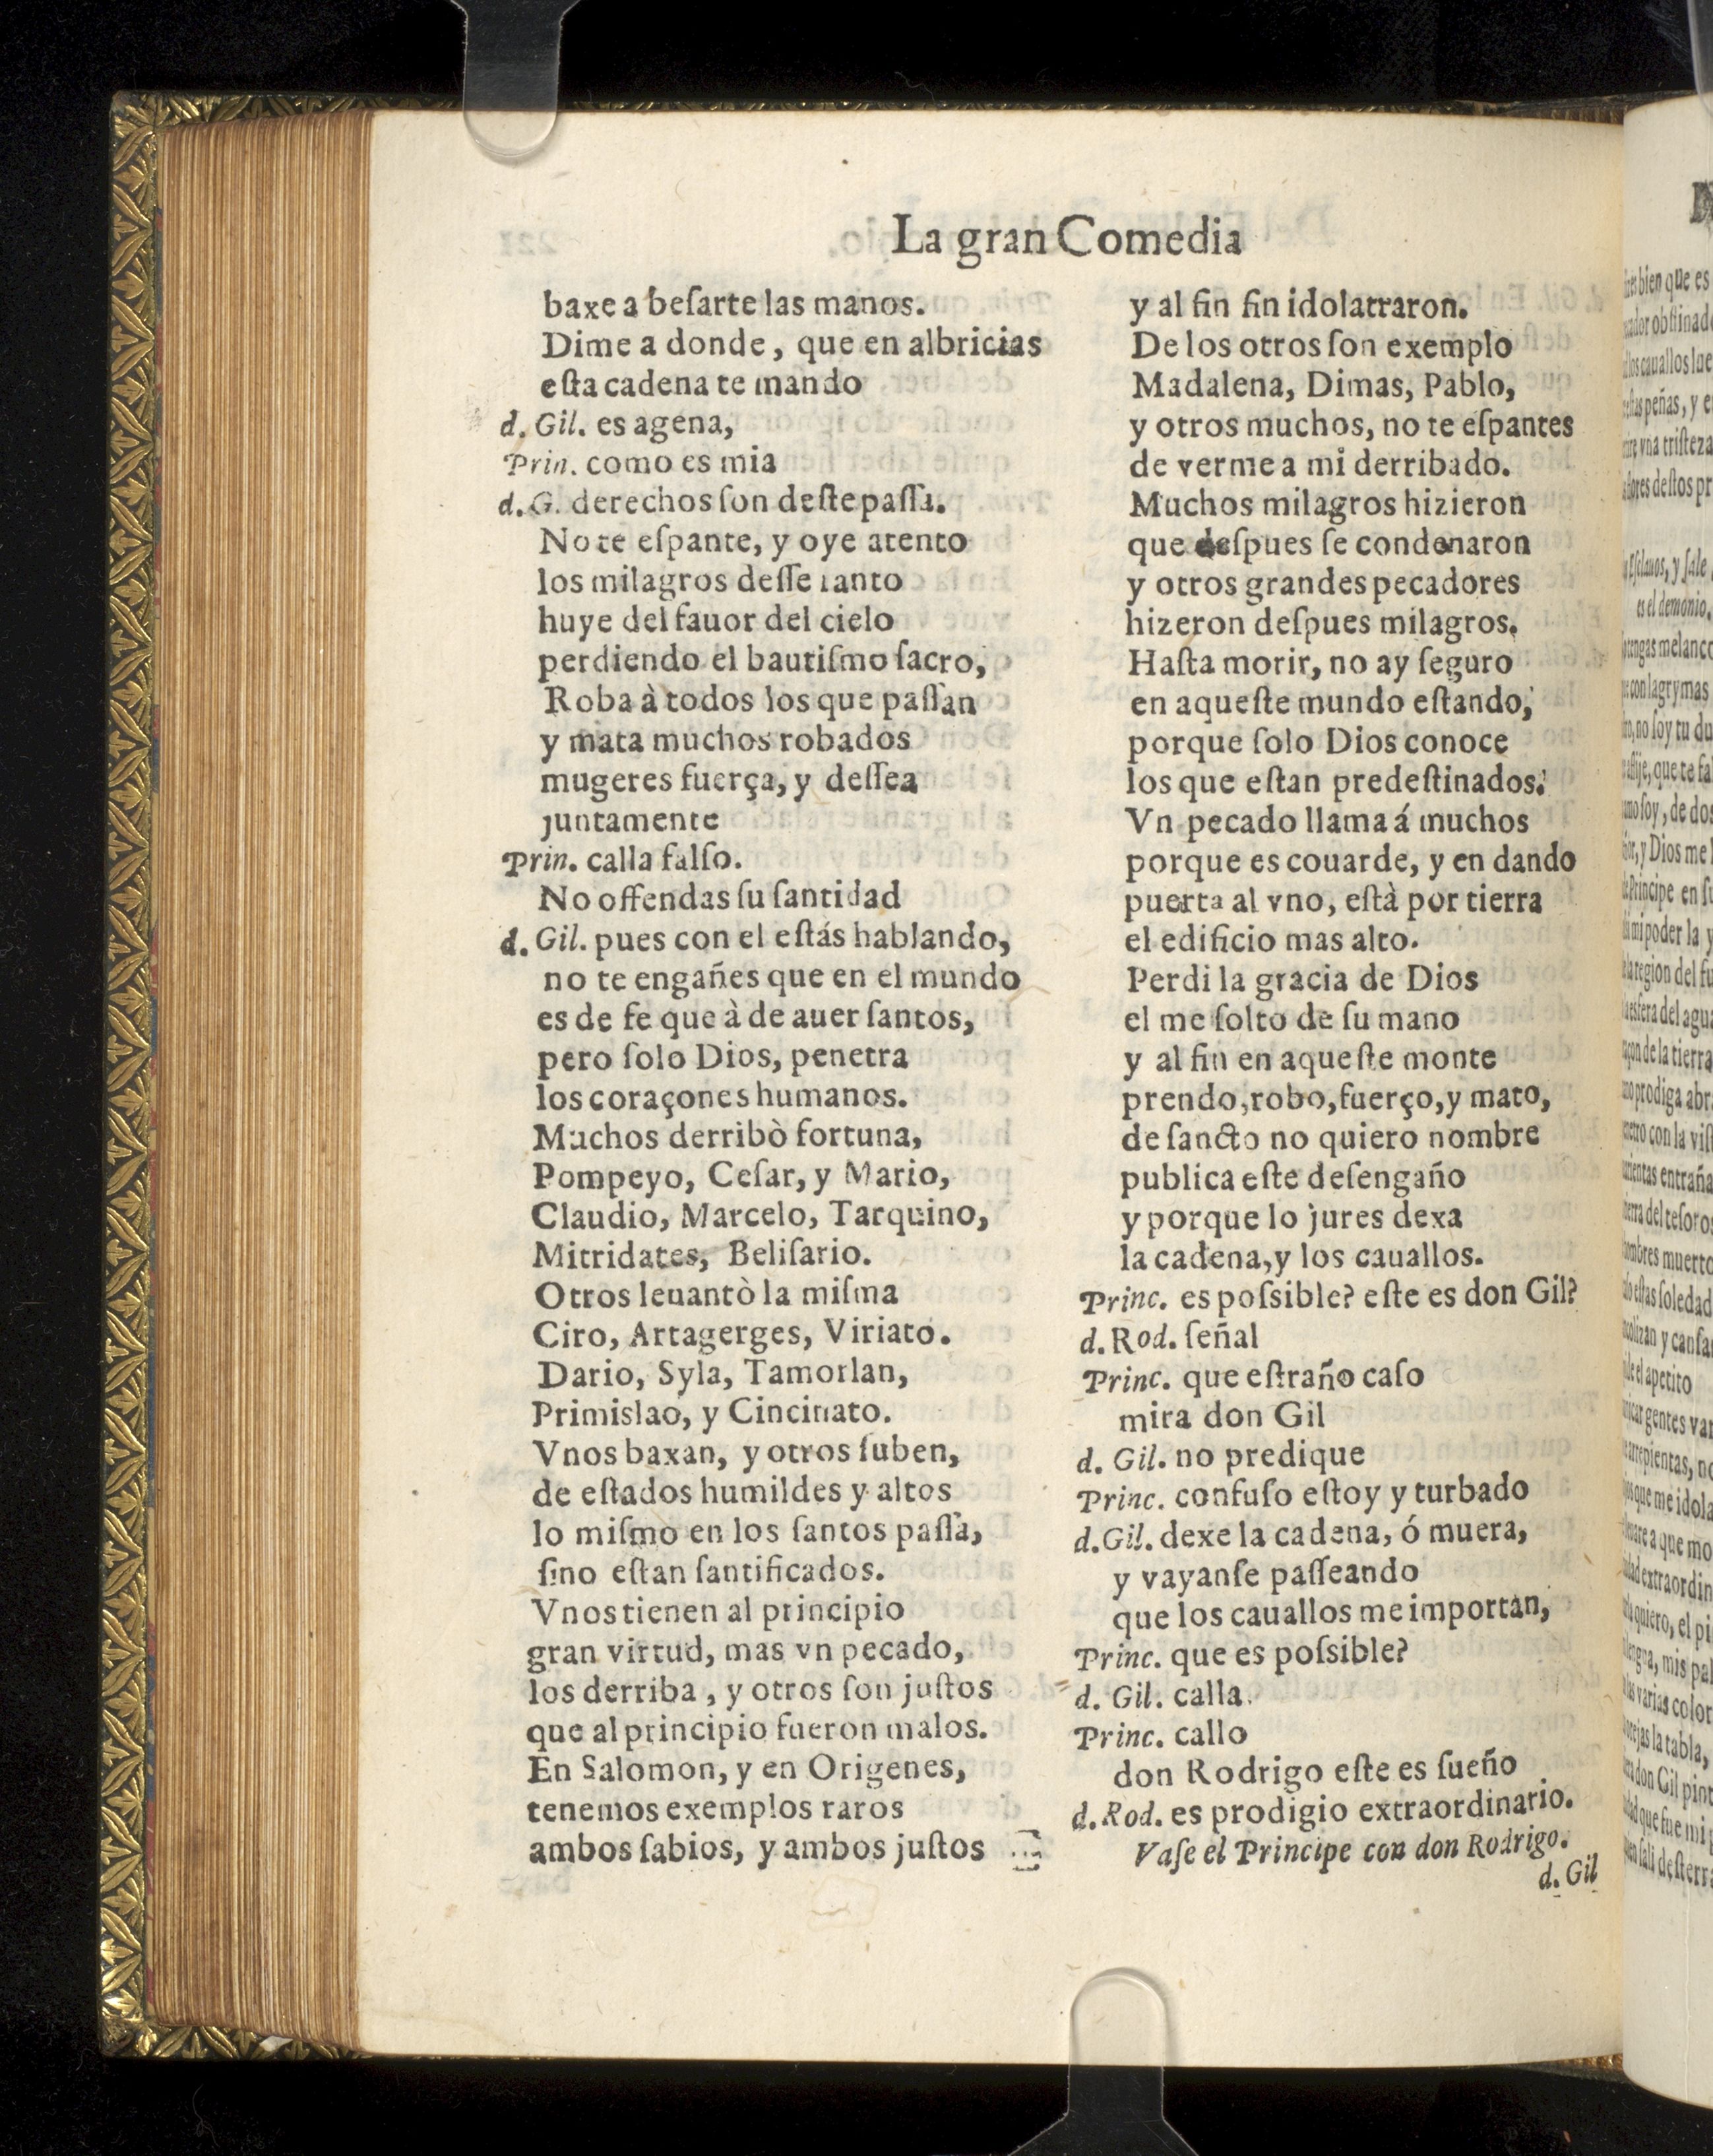 La gran Comedia
baxe a beſarte las manos.
Dime a donde, que en albricias
eſta cadena te mando
d. Gil. es agena,
Prin. como es mia
d. G. derechos ſon deſte paſſa.
No te eſpante, y oye atento
los milagros deſſe ſanto
huye del fauor del cielo
perdiendo el bautiſmo ſacro,
Roba à todos los que paſſan
y mata muchos robados
mugeres fuerça, y deſſea
juntamente
Prin. calla falſo.
No offendas ſu ſantidad
d. Gil. pues con el eſtás hablando,
no te engañes que en el mundo
es de fe que à de auer ſantos,
pero ſolo Dios, penetra
los coraçones humanos.
Muchos derribò fortuna,
Pompeyo, Ceſar, y Mario,
Claudio, Marcelo, Tarquino,
Mitridates, Beliſario.
Otros leuantò la miſma
Ciro, Artagerges, Viriato.
Dario, Syla, Tamorlan,
Primislao, y Cincinato.
Vnos baxan, y otros ſuben,
de eſtados humildes y altos
lo miſmo en los ſantos paſſa,
ſino eſtan ſantificados.
Vnos tienen al principio
gran virtud, mas vn pecado,
los derriba, y otros ſon juſtos
que al principio fueron malos.
En Salomon, y en Origenes,
tenemos exemplos raros
ambos ſabios, y ambos juſtos
y al fin fin idolatraron.
De los otros ſon exemplo
Madalena, Dimas, Pablo,
y otros muchos, no te eſpantes
de verme a mi derribado.
Muchos milagros hizieron
que deſpues ſe condenaron
y otros grandes pecadores
hizeron deſpues milagros.
Haſta morir, no ay ſeguro
en aqueſte mundo eſtando,
porque ſolo Dios conoce
los que eſtan predeſtinados.
Vn pecado llama á muchos
porque es couarde, y en dando
puerta al vno, eſtà por tierra
el edificio mas alto.
Perdi la gracia de Dios
el me ſolto de ſu mano
y al fin en aqueſte monte
prendo, robo, fuerço, y mato,
de ſancto no quiero nombre
publica eſte deſengaño
y porque lo jures dexa
la cadena, y los cauallos.
Princ. es poſsible? eſte es don Gil?
d. Rod. ſeñal
Princ. que eſtraño caſo
mira don Gil
d. Gil. no predique
Princ. confuſo eſtoy y turbado
d. Gil. dexe la cadena, ó muera,
y vayanſe paſſeando
que los cauallos me importan,
Princ. que es poſsible?
d. Gil. calla.
Princ. callo
don Rodrigo eſte es ſueño
d. Rod. es prodigio extraordinario.
Vaſe el Principe con don Rodrigo.
d. Gil